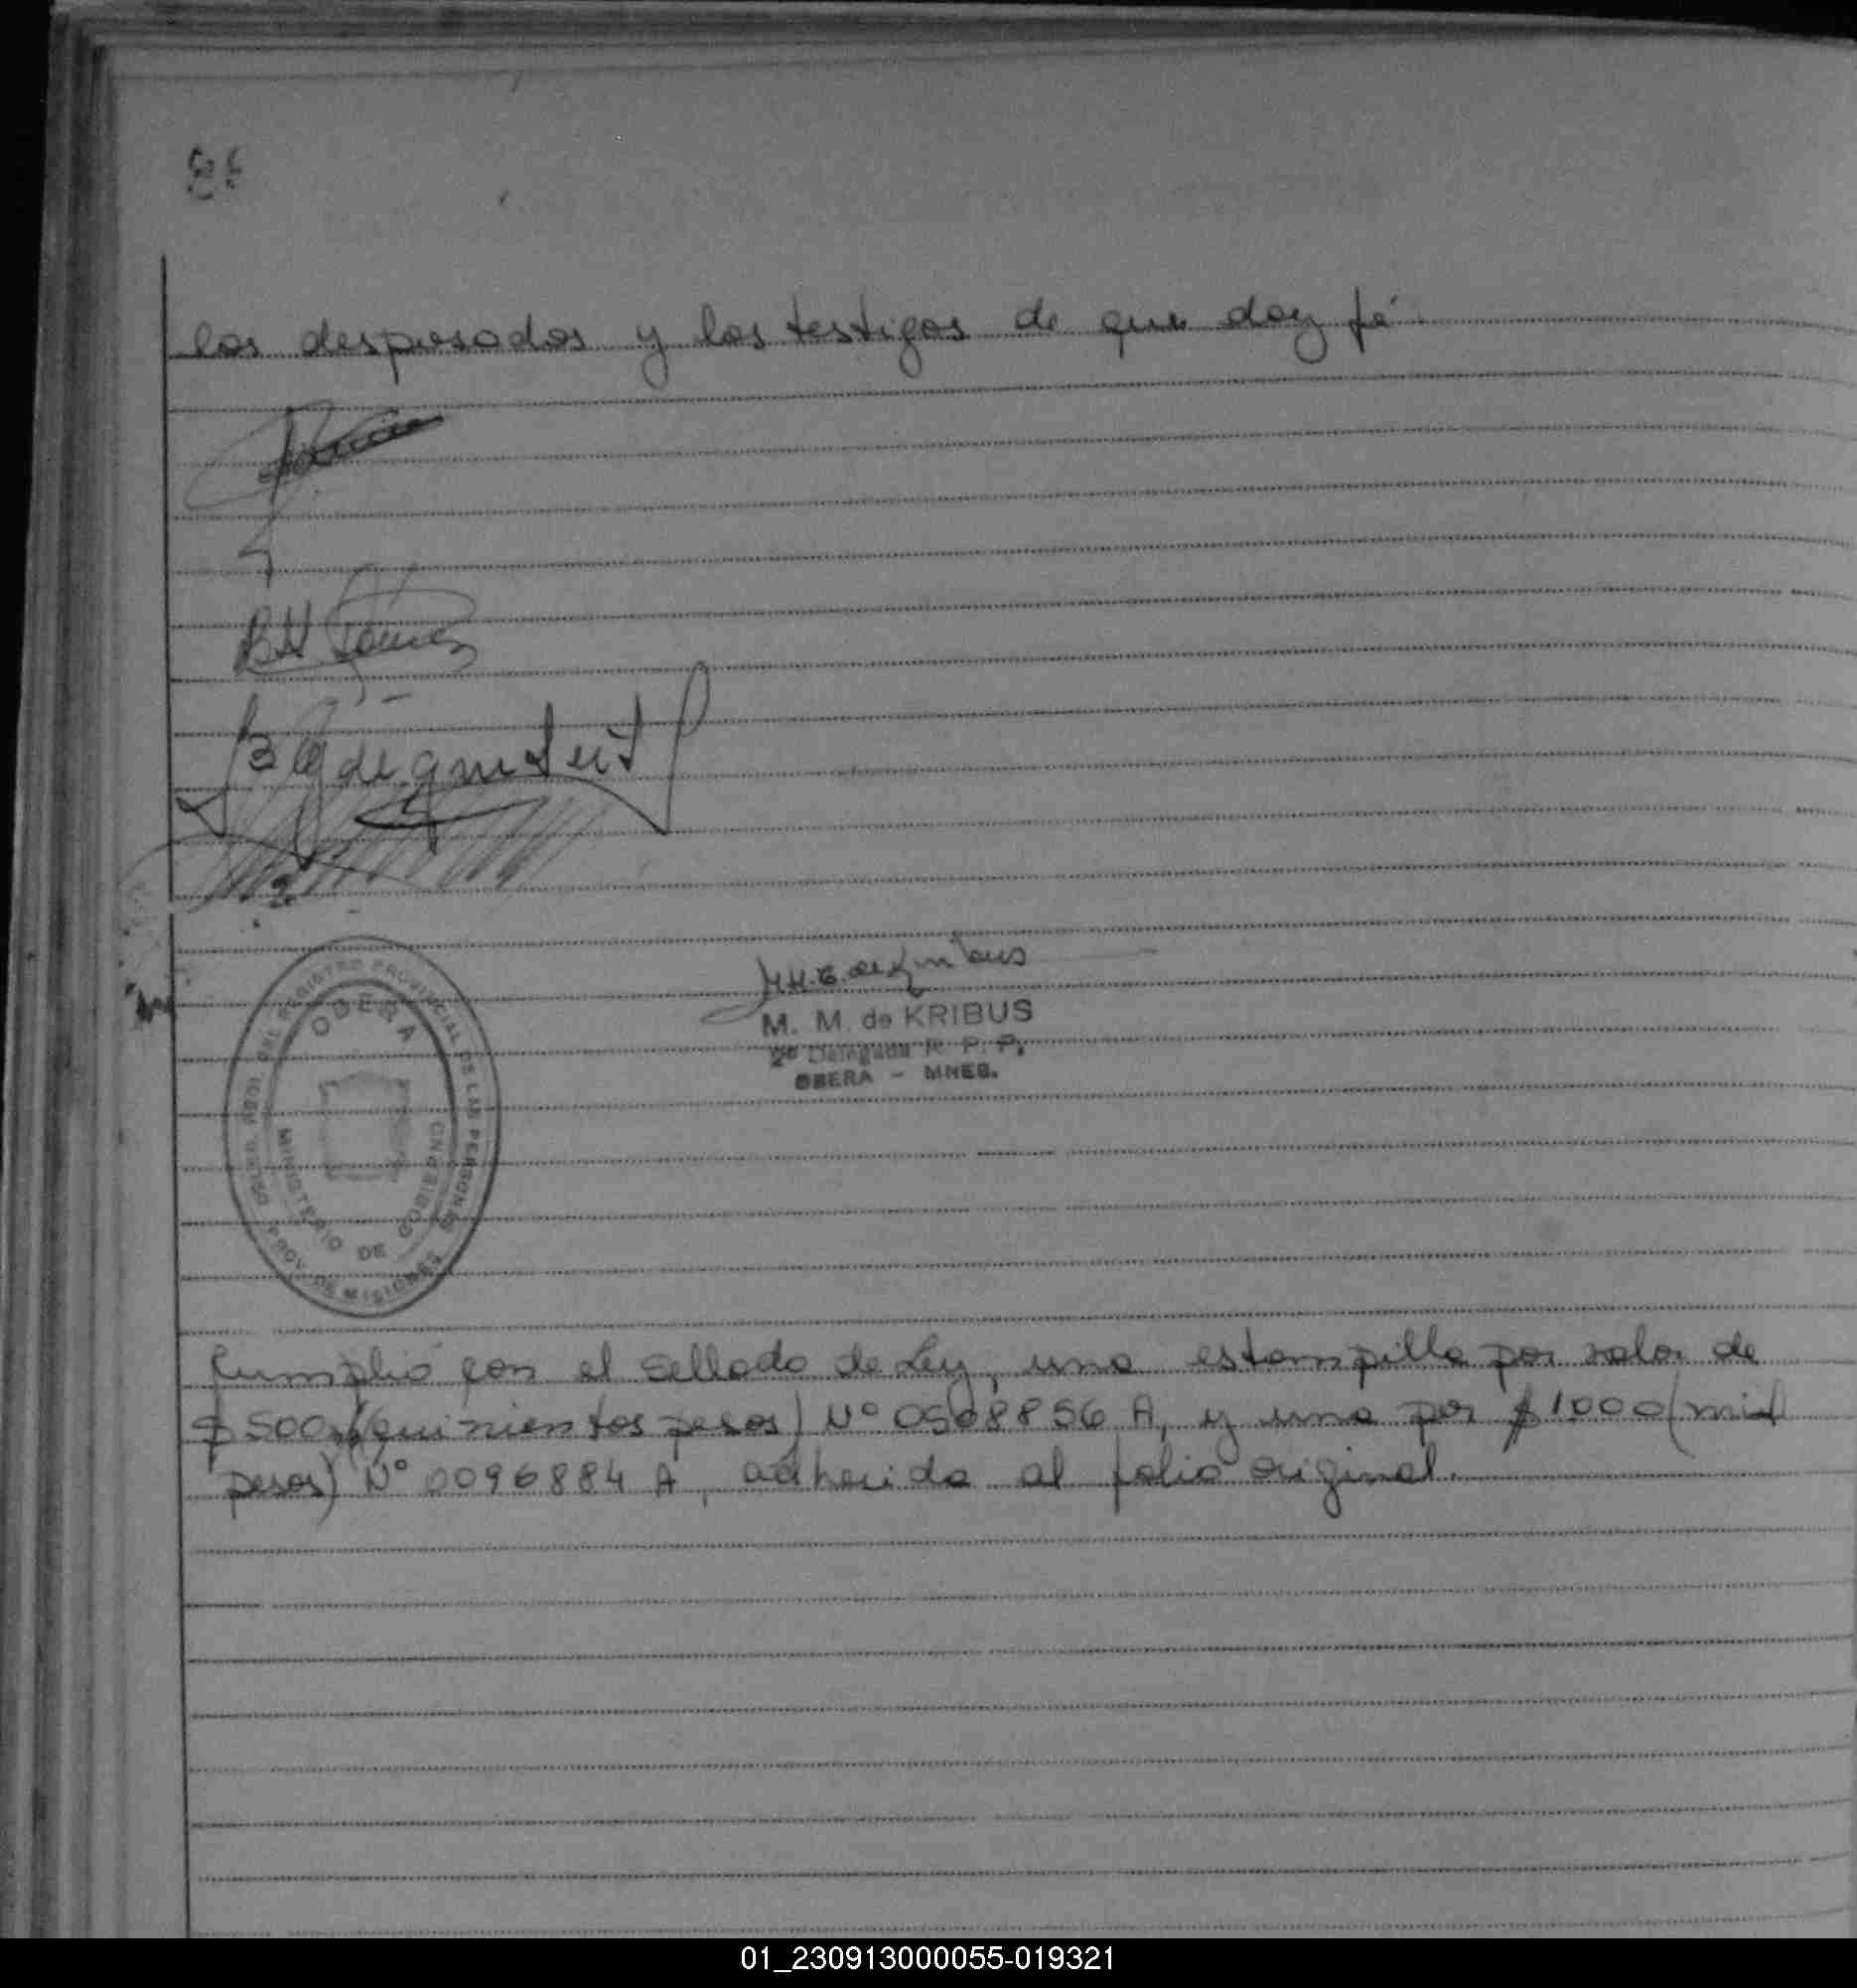 los desposados y los testigos de que doy fé
OBERA
MINISTERIO DE GOBIERNO
DEL REGISTRO PROVINCIAL DE LAS PERSONAS
PROV. DE MISIONES
M. M. de KRIBUS
2ª Delegada R. P. P.
OBERA - MNES.
Cumplió con el sellado de Ley, una estampilla por valor de
$ 500 (quinientos pesos) Nº 0508856 A, y una por $ 1000 (mil
pesos) Nº 0096884 A, adherida al folio original.
01_230913000055-019321